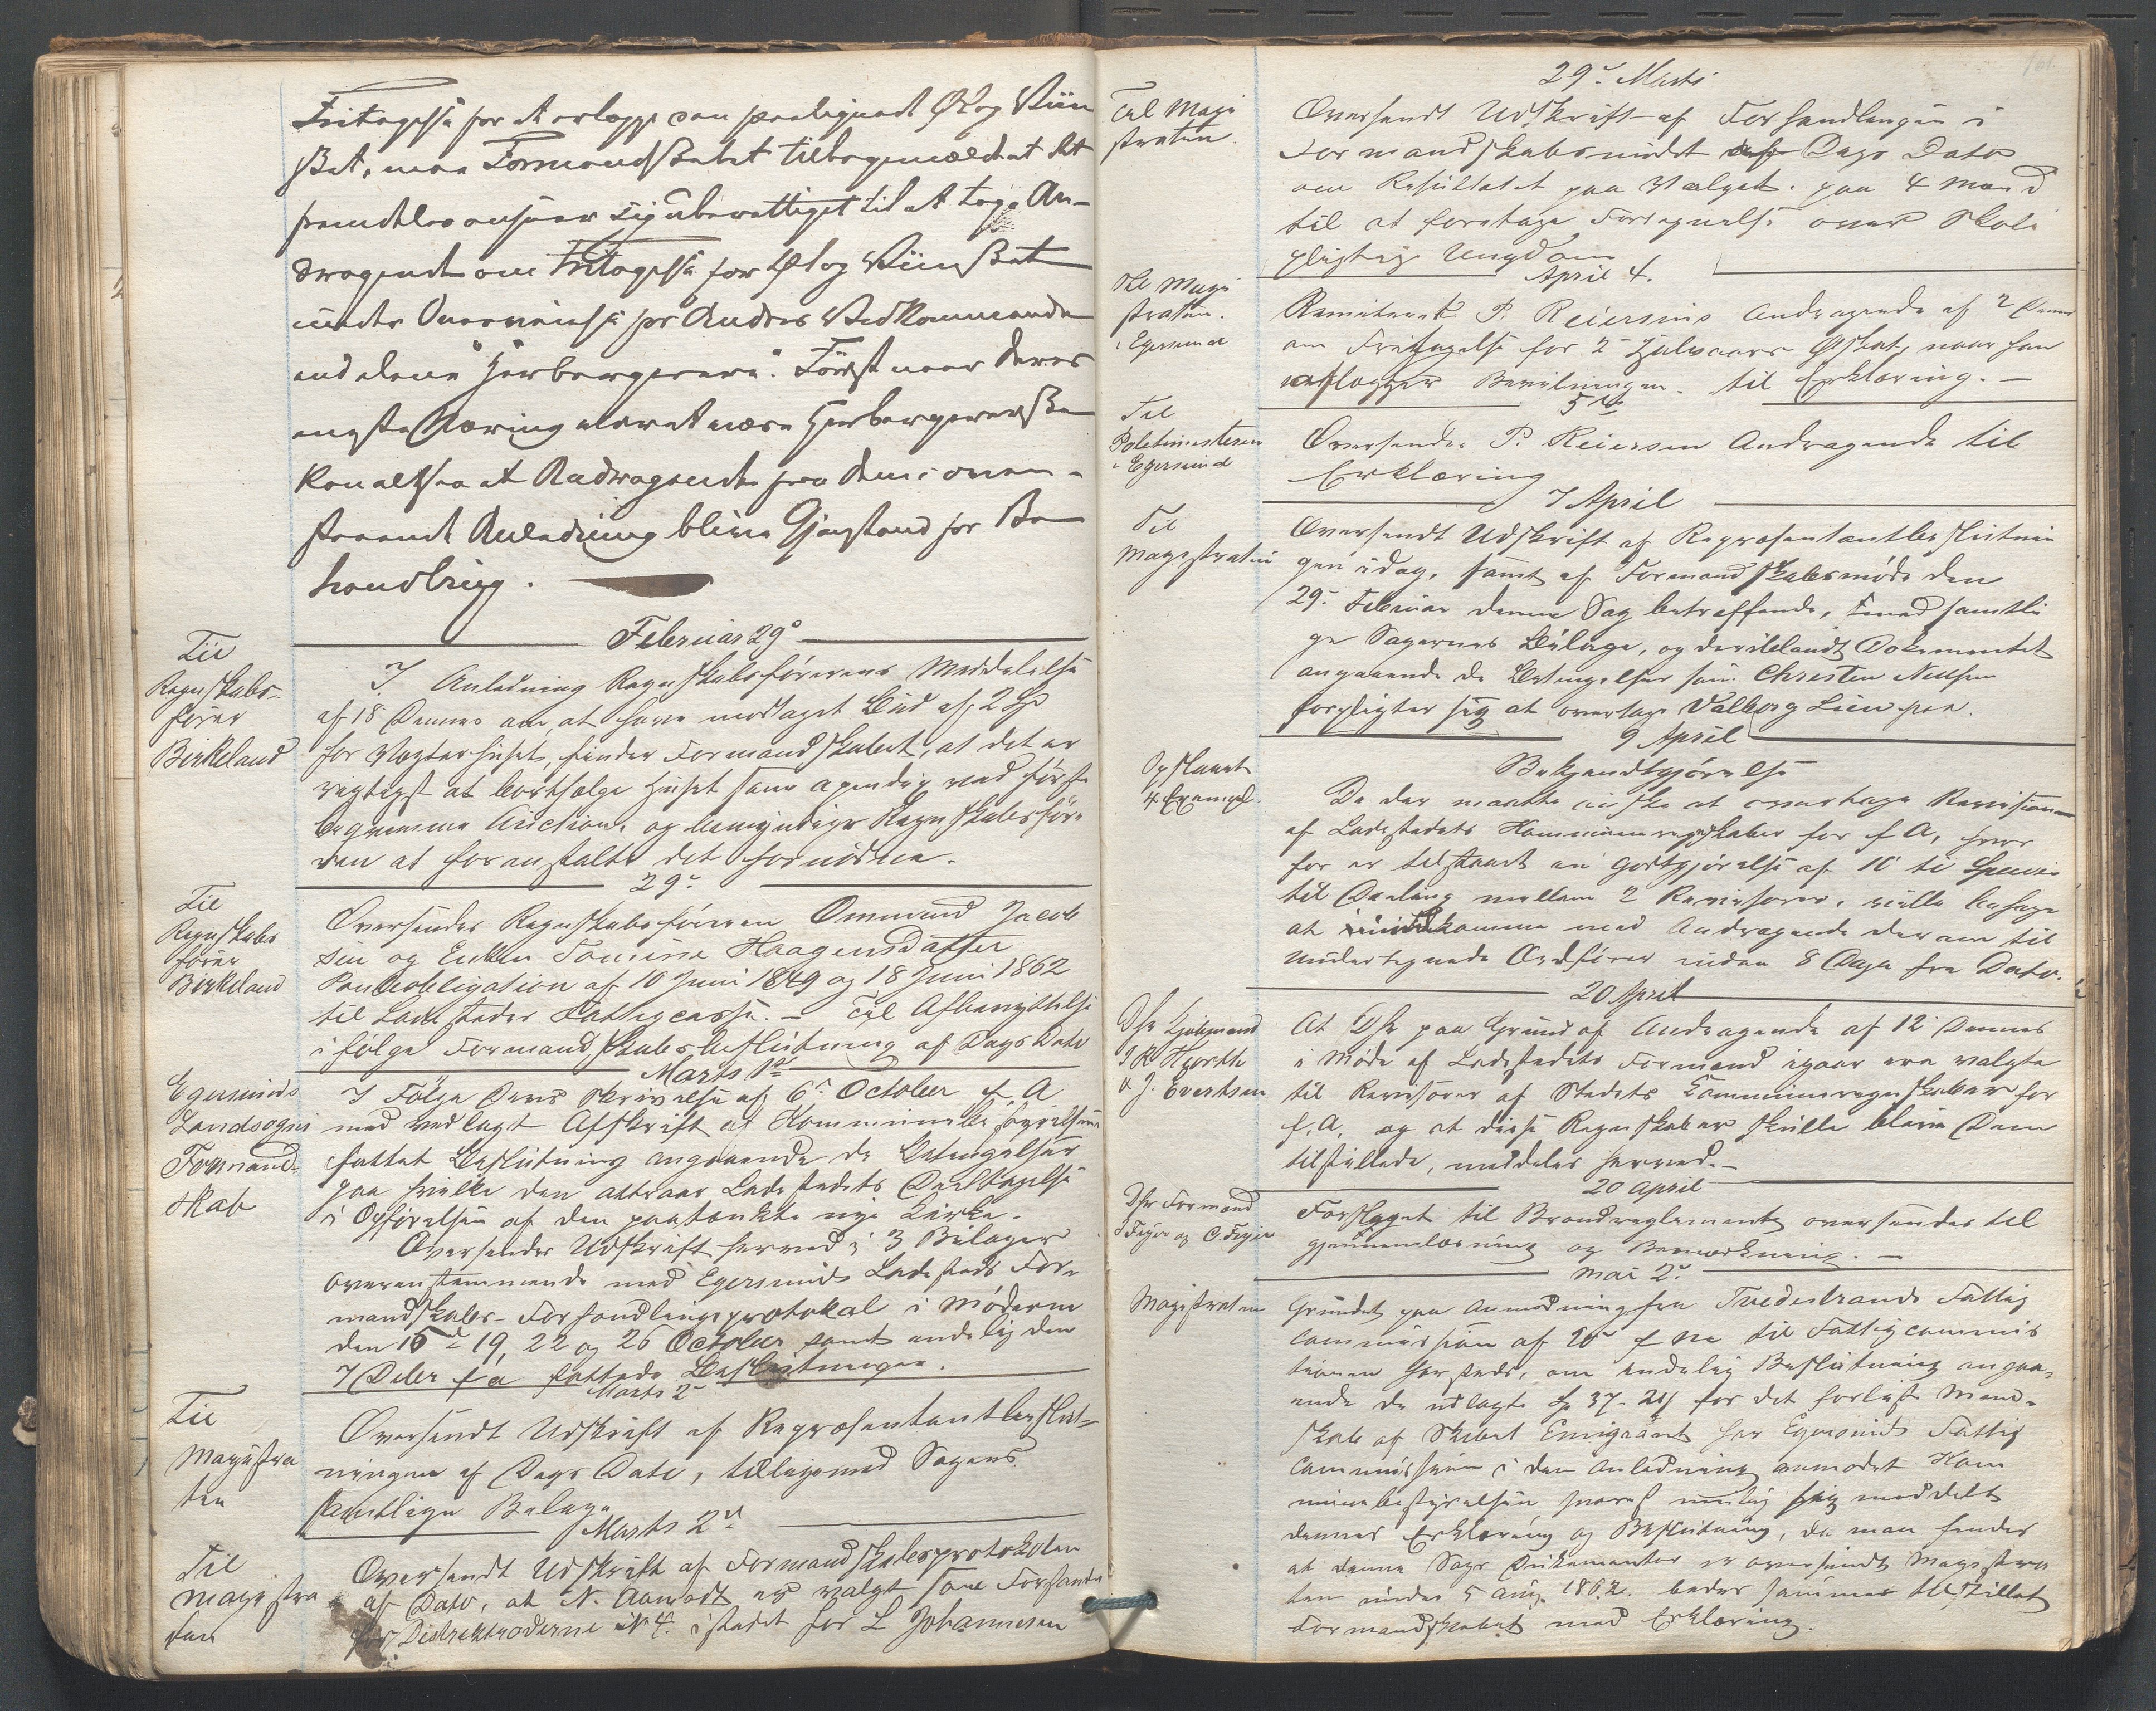 Fritagelse for at erlægge den paalignede Øl og Viin
skat, maa Formandskabet tilbagemelde at det
fremdeles anseer sig uberettiget til at tage An-
dragende om Fritagelse for Øl og Viinskat
under Overveielse for Andres Vedkommende
end alene "Herbergerere". Først naar deres
eneste Næring alene at være Herbergererske
kan altsaa et Andragende fra dem i oven-
staaende Anledning blive Gjenstand for Be
handling.
Februar 29de
Til
Regnskabs-
fører
Birkeland
I Anledning Regnskabsførerens Meddelelse
af 18 Dennes om, at have modtaget Bud af 2 Spd
for Vægterhuset, finder Formandskabet, at det er
rigtigst at bortsælge Huset ved første
beqvemme Auction, og bemyndiger Regnskabsføre
ren at foranstalte det fornødne.
29de
Til
Regnskabs
fører
Birkeland
Oversendes Regnskabsføreren Ommund Jacob
sen og Enken Tomine Haagensdatter
Panteobligation af 10 Juni 1849 og 18 Juni 1862
til Ladestedets Fattigcasse. - Til Afbenyttelse
ifølge Formandskabsbeslutning af Dags Dato
Marts 1ste
Egersunds
Landsogns
Formand-
skab
I Følge Deres Skrivelse af 6te October f. A
med vedlagt Afskrift af Kommunebestyrelsens
fattet Beslutning angaaende de Betingelser
paa hvilke den attraar Ladestedets Deeltagelse
i Opførelsen af den paatænkte nye Kirke.
Oversendes Udskrift herved i 3 Bilager
overensstemmende med Egersunds Ladesteds For
mandskabs-Forhandlingsprotokol i Møderne
den 15de 19, 22 og 26 October samt endelig den
7 Decbr f. a. fattede Beslutninger.
Marts 2de
Til
Magistra
ten
Oversendt Udskrift af Repræsentantbeslut-
ningen af Dags Dato, tilligemed Sagens
samtlige Belage
Marts 2de
Til
Magistra
ten
Oversendt Udskrift af Formandskabsprotokolen
af Dato, at N. Aamodt er valgt som Forstander
for Distriktroderne No 4. istedet for L Johannesen
29de Marts
Til Magi
straten
Oversendt Udskrift af Forhandlingen i
Formandskabsmødet Dags Dato
om Resultatet paa Valget paa 4 Mænd
til at foretage Fortegnelse over Skole
pligtig Ungdom
April 4.
Til Magi
straten
i Egersund
Remitteret P. Reiersens Andragende af 2 Dennes
om Fritagelse for 2 Halvaars Ølskat, naar han
aflægger Bevilningen. til Erklæring. -
5te
Til
Politimesteren
i Egersund
Oversendes P. Reiersen Andragende til
Erklæring
7 April
Til
Magistraten
Oversendt Udskrift af Repræsentantbeslutnin
gen idag, samt af Formandskabsmøde den
29de Februar denne Sag betræffende, med samtli
ge Sagernes Bilage, og deriblandt Dokumentet
angaaende de Betingelser som Christen Nielsen
forpligter sig at overtage Valborg Lien paa.
9 April
Opslaaet
4 Exempl.
Bekjendtgjørelse
De der maatte ønske at overtage Revisionen
af Ladestedets Kommuneregnskaber for f. A, hvor
for er tilstaaet en Godtgjørelse af 10 ti Specie
til Deeling mellem 2 Revisorer, ville behage
at indkomme med Andragende derom til
undertegnede Ordfører inden 8 Dage fra Dato.
20 April
DHr
I R Hjorth
& J. Evertsen
At DHr paa Grund af Andragende af 12 Dennes
i Møde af Ladestedets Formænd igaar ere valgte
til Revisorer af Stedets Kommuneregnskaber for
f. A. og at disse Regnskaber skulle blive Dem
tilstillede, meddeles herved.-
20 April
DHr Formænd
I Feyer og C. Feyer
Forslaget til Brandreglement oversendes til
gjennemlæsning og Bemærkning. -
Mai 2de
Magistraten
Grundet paa Anmodning fra Tvedestrands Fattig
commission af 20de f M til Fattigcommis
sionen hersteds, om endelig Beslutning angaa,
ende de udlagte Sp 37-21 for det forliste Mand-
skab af Skibet Emigrant har Egersunds Fattig
commission i den Anledning anmodet Kom
munebestyrelsen snarest mulig meddelt
dennes Erklæring og Beslutning, da man finder
at denne Sags Dokumenter er oversendt Magistra
ten under 5 Aug. 1862. bedes samme tilstillet
Formandskabet med Erklæring.